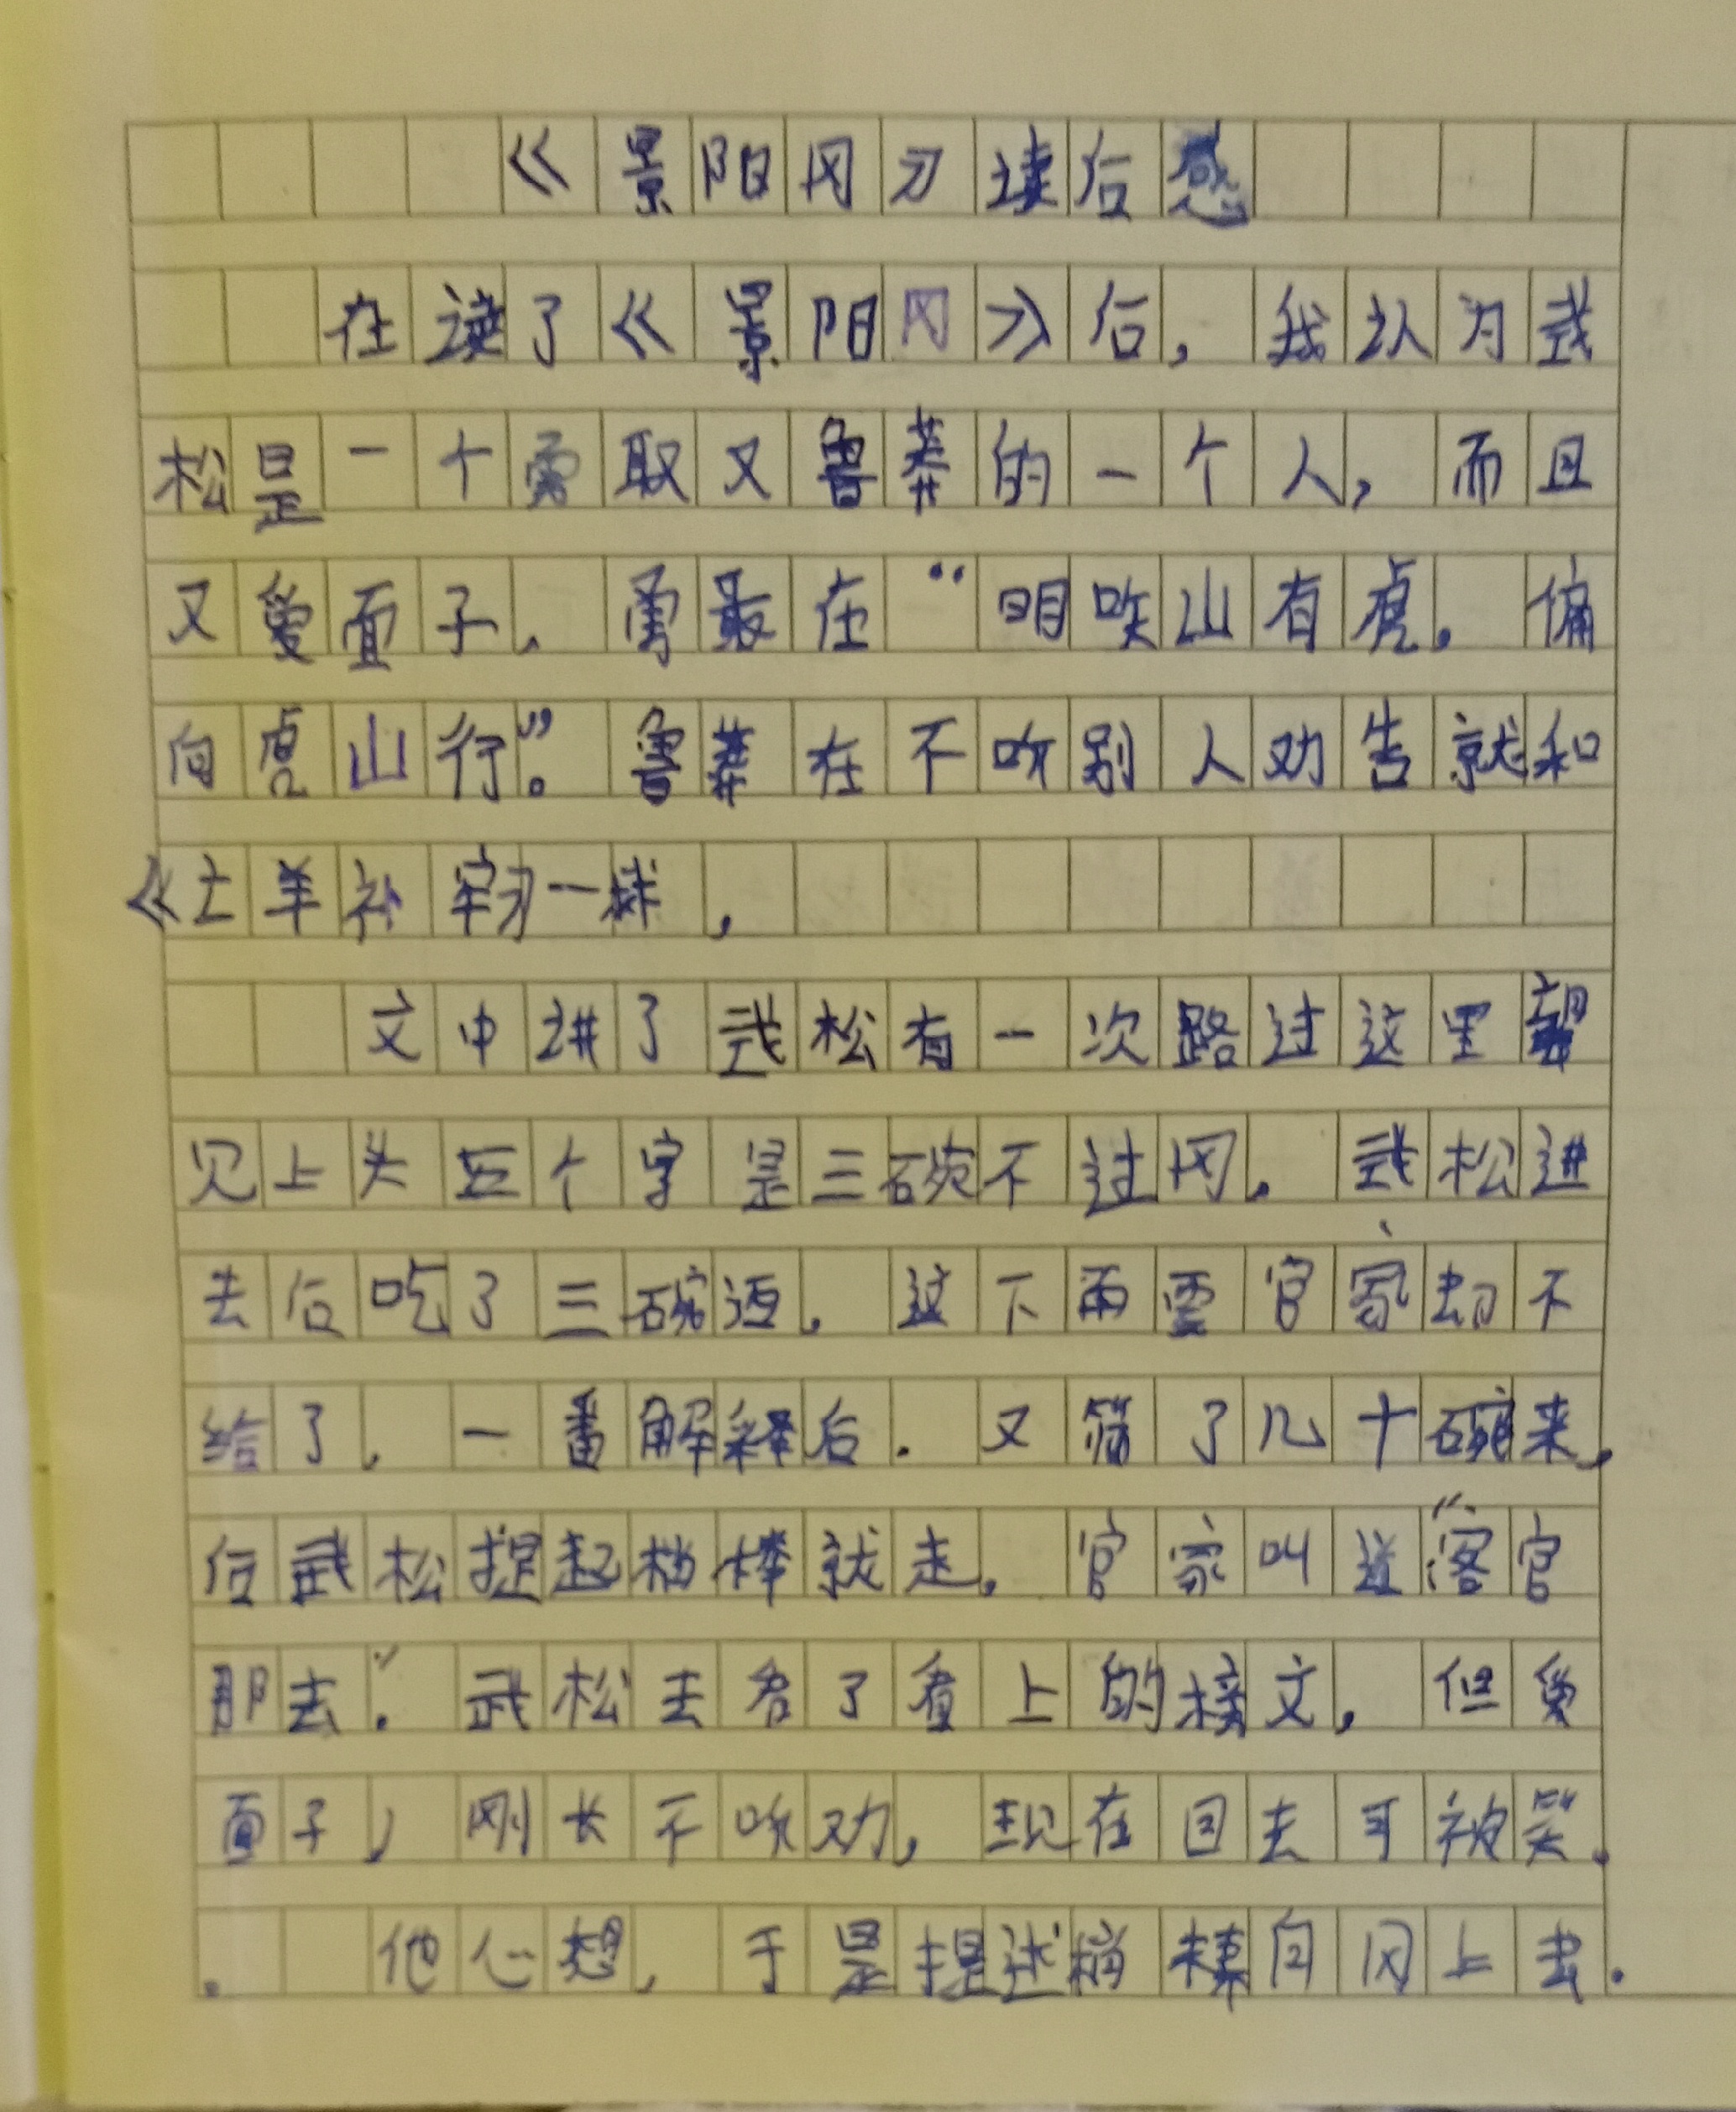 《景阳冈》读后感
在读了《景阳冈》后，我认为武
松是一个勇敢又鲁莽的一个人，而且
又爱面子，勇最在“明吹山有虎。偏
向虎山行”。鲁莽在不听别人劝告就和
《亡羊补牢》一样，
文中讲了武松有一次路过这里望
见上头五个字是三碗不过冈。武松进
去后吃了三碗酒，这下再要官家却不
给了，一番解释后．又筛了几十碗来，
后武松提起梢棒就走，官家叫道“客官
那去”．武松去看了看上的榜文，但爱
面子，刚才不听劝，现在回去可被笑．
．他心想，于是提述梢棒向冈上去．